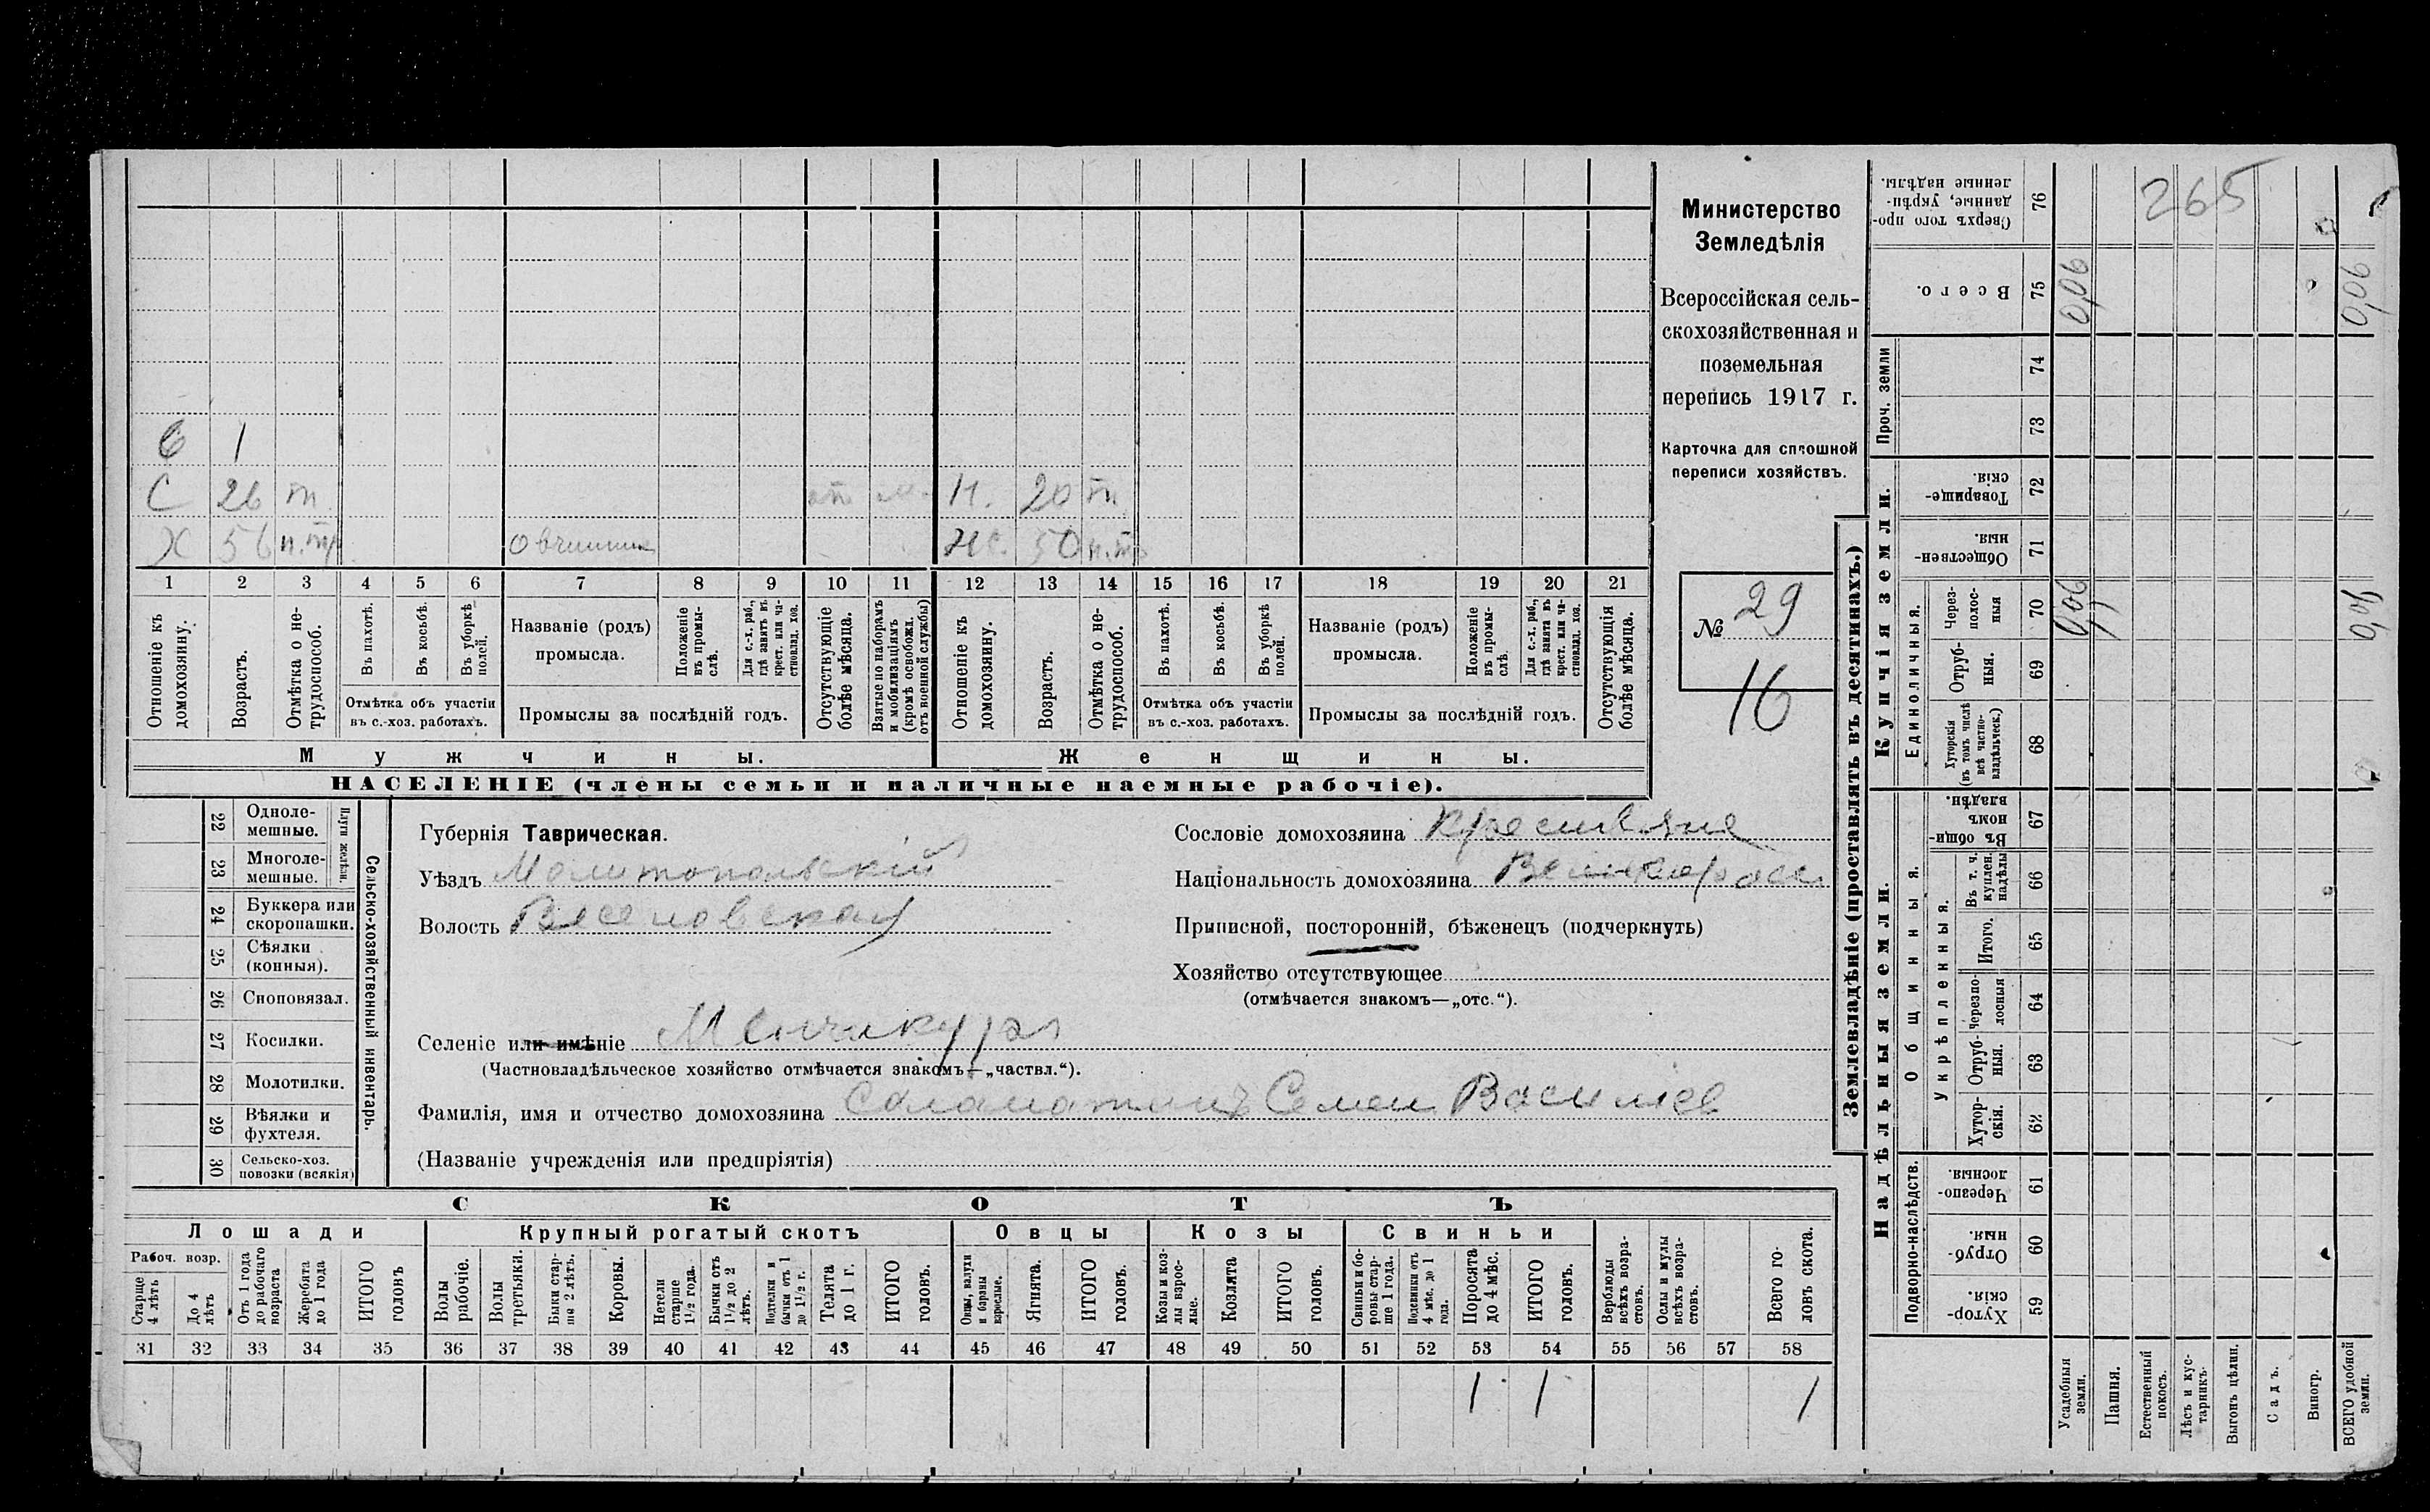 Министерство
Земледѣлія
Всероссійская сель-
скохозяйственная и
поземельная
перепись 1917 г.
Карточка для сплошной
переписи хозяйствъ.
№ 29
16
С 1
С 26 т
Х 56 н.тр овчинник
Н. 20 т
ЖС. 50 н.тр
1 2 3 4 5 6 7 8 9 10 11 12 13 14 15 16 17 18 19 20 21
Отношеніе къ домохозяину.
Возрастъ.
Отмѣтка о не-трудоспособ.
Въ пахотѣ.
Въ косьбѣ.
Въ уборкѣ полей.
Отмѣтка объ участіи
въ с.-хоз. работахъ.
Названіе (родъ)
промысла.
Положеніе въ промы-слѣ.
Для с.-х. раб., гдѣ занятъ въ крест. или ча-стновлад. хоз.
Промыслы за послѣдній годъ.
Отсутствующіе болѣе мѣсяца.
Взятые по наборамъ и мобилизаціямъ (кромѣ освобожд. отъ военной службы)
Отношеніе къ домохозяину.
Возрастъ.
Отмѣтка о не-трудоспособ.
Въ пахотѣ.
Въ косьбѣ.
Въ уборкѣ полей.
Отмѣтка объ участіи
въ с.-хоз. работахъ.
Названіе (родъ)
промысла.
Положеніе въ промы-слѣ.
Для с.-х. раб., гдѣ занята въ крест. или ча-стновлад. хоз.
Промыслы за послѣдній годъ.
Отсутствующія болѣе мѣсяца.
Мужчины.
Женщины.
НАСЕЛЕНІЕ (члены семьи и наличные наемные рабочіе).
Сельско-хозяйственный инвентарь.
Плуги желѣзн.
22 Одноле-мешные.
23 Многоле-мешные.
24 Буккера или скоропашки.
25 Сѣялки (конныя).
26 Сноповязал.
27 Косилки.
28 Молотилки.
29 Вѣялки и фухтеля.
30 Сельско-хоз. повозки (всякія)
Губернія Таврическая.
Уѣздъ Мелитопольскій
Волость Веселовская
Сословіе домохозяина Крестьяне
Національность домохозяина Великоросс
Приписной, посторонній, бѣженецъ (подчеркнуть)
Хозяйство отсутствующее
(отмѣчается знакомъ—„отс.“).
Селеніе или имѣніе Менчикуры
(Частновладѣльческое хозяйство отмѣчается знакомъ—„частвл.“).
Фамилія, имя и отчество домохозяина Саламатинъ Семен Василіев
(Названіе учрежденія или предпріятія)
СКОТЪ
Лошади
Крупный рогатый скотъ
Овцы
Козы
Свиньи
Рабоч. возр.
Старше 4 лѣтъ
До 4 лѣтъ
Отъ 1 года до рабочаго возраста
Жеребята до 1 года
ИТОГО головъ
Волы рабочіе.
Волы третьяки.
Быки стар-ше 2 лѣтъ.
Коровы.
Нетели старше 1½ года.
Бычки отъ 1½ до 2 лѣтъ.
Подтелки и бычки отъ 1 до 1½ г.
Телята до 1 г.
ИТОГО головъ.
Овцы, валухи и бараны взрослые.
Ягнята.
ИТОГО головъ.
Козы и коз-лы взрос-лые.
Козлята
ИТОГО головъ.
Свиньи и бо-ровы стар-ше 1 года.
Подсвинки отъ 4 мѣс. до 1 года.
Поросята до 4 мѣс.
ИТОГО головъ.
Верблюды всѣхъ возра-стовъ.
Ослы и мулы всѣхъ возра-стовъ.
Всего го-ловъ скота.
31 32 33 34 35 36 37 38 39 40 41 42 43 44 45 46 47 48 49 50 51 52 53 54 55 56 57 58
1 1 1
Землевладѣніе (проставлять въ десятинахъ.)
Надѣльныя земли.
Купчія земли.
Проч. земли
Подворно-наслѣдств.
Общинныя.
Укрѣпленныя.
Единоличныя.
76 Сверхъ того про-данные, укрѣп-ленные надѣлы.
75 Всего. 0,06 0,06
74
73
72 Товарище-скія.
71 Обществен-ныя.
70 Через-полос-ныя 0,06 0,06
69 Отруб-ныя.
68 Хуторскія (въ томъ числѣ всѣ частно-владѣльческ.)
67 Въ общи-номъ владѣн.
66 Въ т. ч. куплен. надѣлы
65 Итого.
64 Черезпо-лосныя
63 Отруб-ныя.
62 Хутор-скія.
61 Черезпо-лосныя.
60 Отруб-ныя.
59 Хутор-скія.
265
Усадебныя земли.
Пашня.
Естественный покосъ.
Лѣсъ и кус-тарникъ.
Выгонъ цѣлин.
Садъ.
Виногр.
ВСЕГО удобной земли.